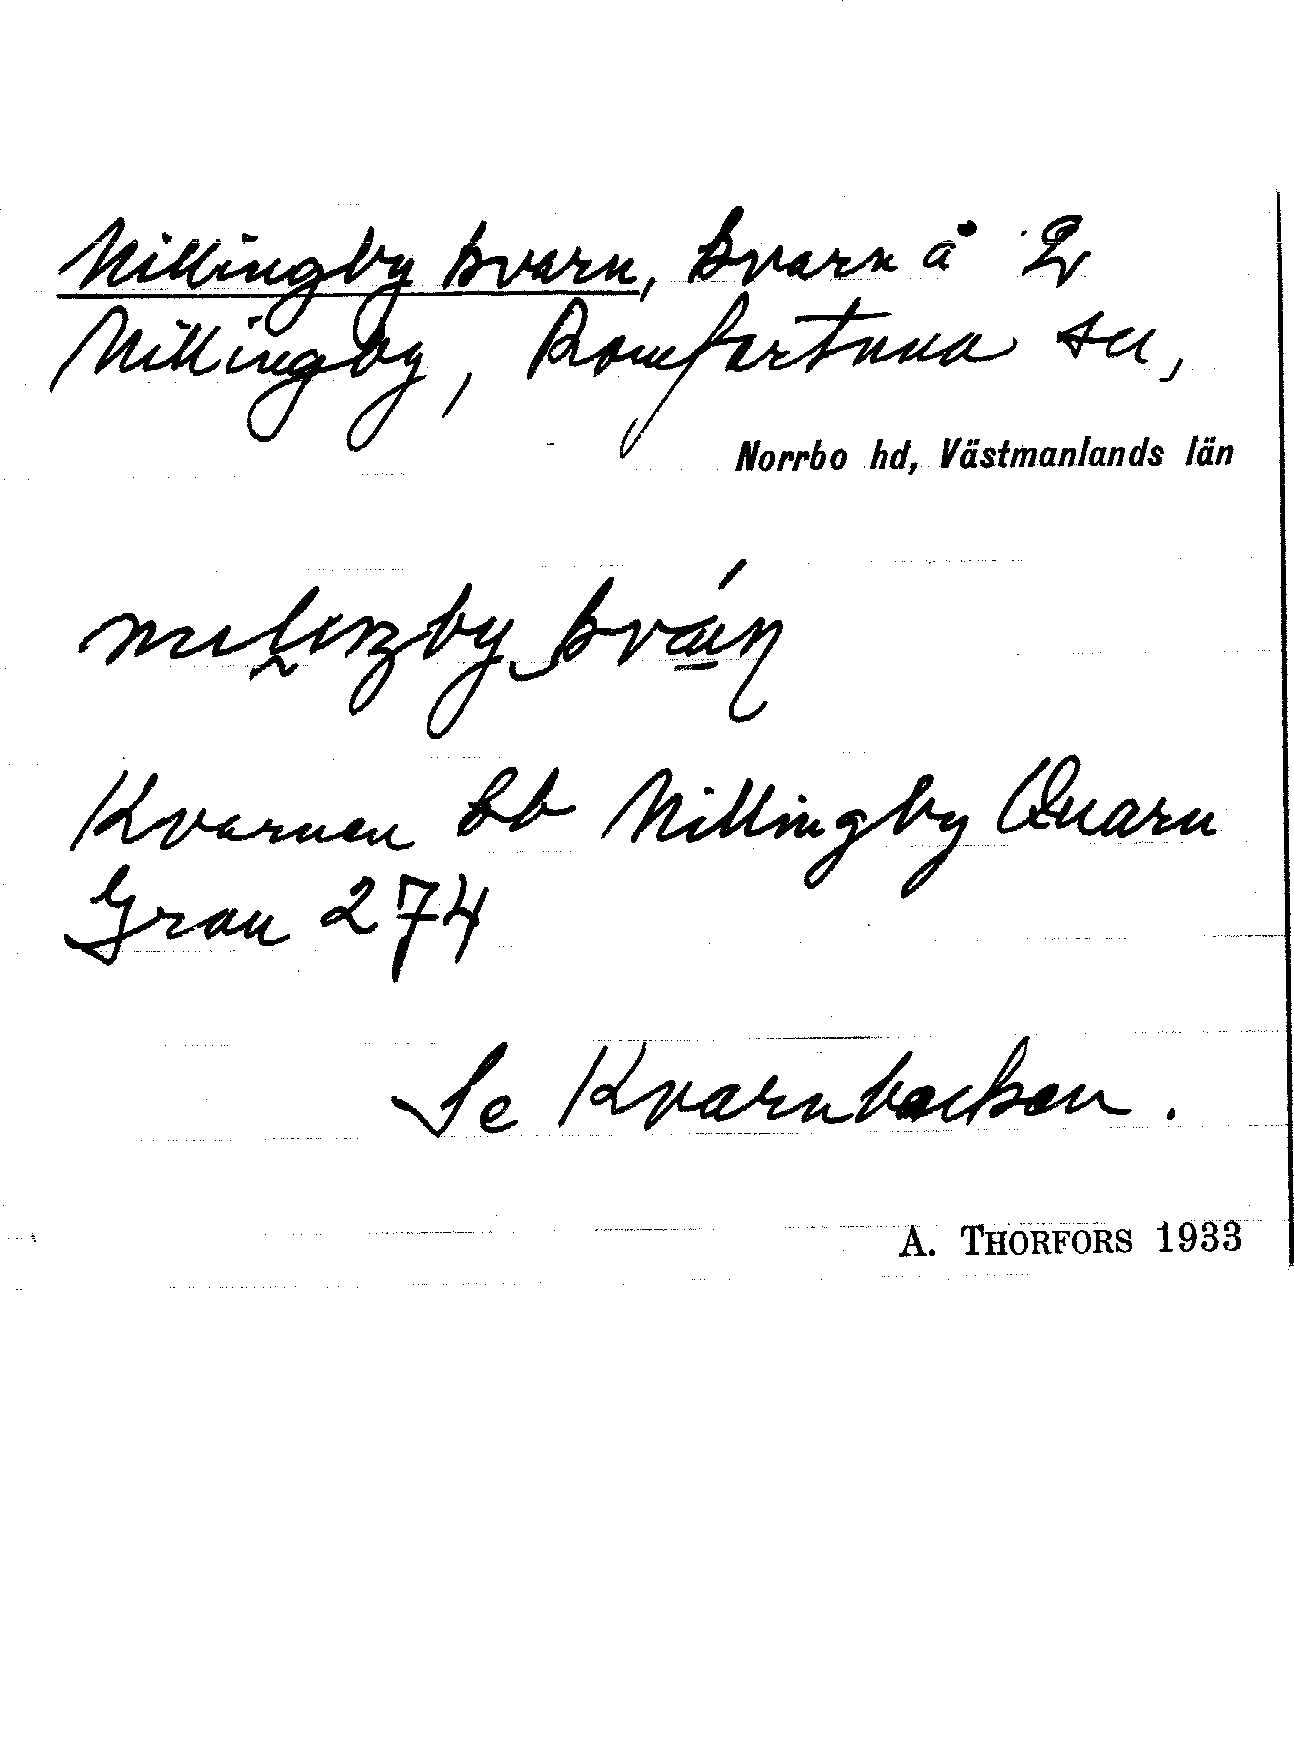 Nillingby kvarn, kvarn å
Nillingby, Romfartuna sn,
Norrbo hd, Västmanlands län
kván
Kvarnen bb Nillingby Quarn
Gran 274
Se Kvarnbacken.
A. THORFORS 1933